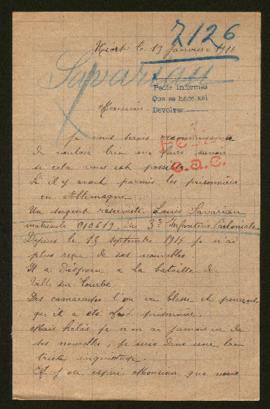 7126
Niort le 13 Janvier
Savariau
Monsieur
Pedir Informes
Que se hace así
Devolver
Je vous serais reconnaissance
de vouloir bien me faire savoir
si cela vous est possible
Si il y avait parmis les prisonniers
en Allemagne
Un sergent reserviste Louis Savariau
matricule 010619 du 3e Infanterie Coloniale
Depuis le 13 septembre 1915 je n'ai
plus reçu de ses nouvelles
Il a disparu a la bataille de
Ville sur Tourbe
Des camarades l'on vu blessé et pensent
qu'il a été fait prisonnier
Mais hélas je n'en ai jamais eu de
ses nouvelles, je suis dans une bien
triste inquiétude
espoir Monsieur que vous